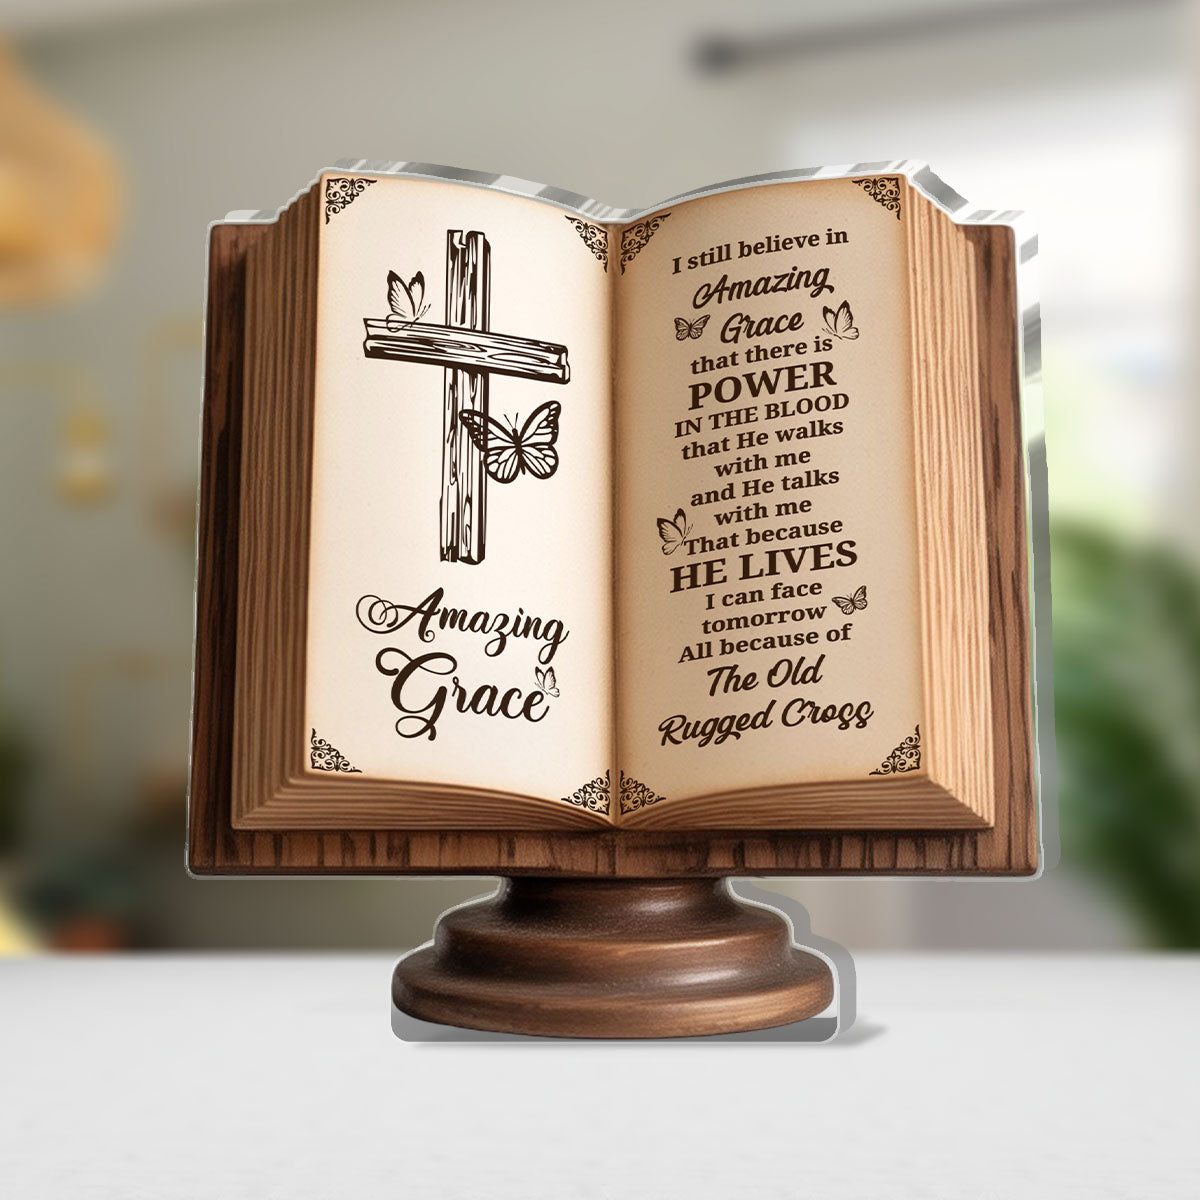 Amazing
Grace
I still believe in
Amazing
Grace
that there is
POWER
IN THE BLOOD
that He walks
with me
and He talks
with me
That because
HE LIVES
I can face
tomorrow
All because of
The Old
Rugged Cross